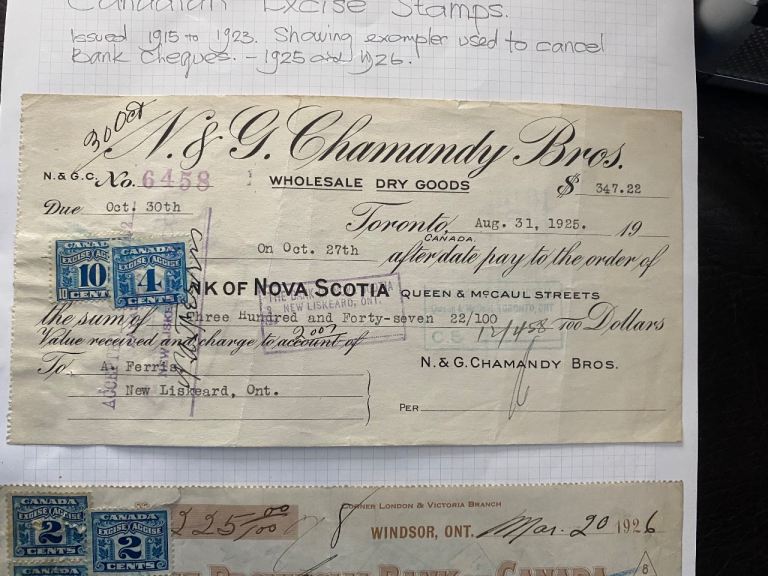 Canadian Excise Stamps.
Issued 1915 to 1923. Showing exampler used to cancel
Bank Cheques. - 1925 and 1926.
30 Oct
N. & G. Chamandy Bros.
N. & G.C. No. 6458
WHOLESALE DRY GOODS
$ 347.22
Due Oct. 30th
Toronto, Aug. 31, 1925. 19
CANADA.
On Oct. 27th after date pay to the order of
CANADA
EXCISE ACCISE
10
10
CENTS
CANADA
EXCISE ACCISE
4
CENTS
NK OF NOVA SCOTIA QUEEN & MCCAUL STREETS
THE BANK
NEW LISKEARD, ONT.
the sum of Three Hundred and Forty-seven 22/100 100 Dollars
Value received and charge to account of
2007
12/458
C.S.
To A. Ferris,
New Liskeard, Ont.
N. & G. CHAMANDY BROS.
PER
NEW LISKE
CANADA
EXCISE ACCISE
2
CENTS
CANADA
EXCISE ACCISE
2
CENTS
225 00/100
CORNER LONDON & VICTORIA BRANCH
WINDSOR, ONT. Mar. 20 1926
8
PROVINCIAL BANK OF CANADA